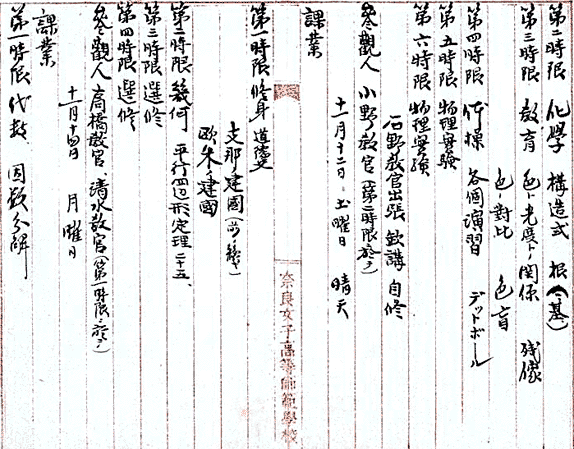 第二時限 化学 構造式 根(基)
第三時限 教育 色ト光度トノ関係 残像
色ノ対比 色盲
第四時限 体操 各個演習 デッドボール
第五時限 物理実験
第六時限 物理実験
石野教官出張 欠講 自修
参観人 小野教官(第二時限ニ於テ)
十一月十二日 土曜日 晴天
課業
第一時限 修身 道徳史
支那ノ建国
欧米ノ建国
第二時限 幾何 平行四辺形定理二十五、
第三時限 選修
第四時限 選修
参観人 高橋教官、清水教官(第一時限ニ於テ)
十一月十四日 月曜日
課業
第一時限 代数 因数分解
奈良女子高等師範學校